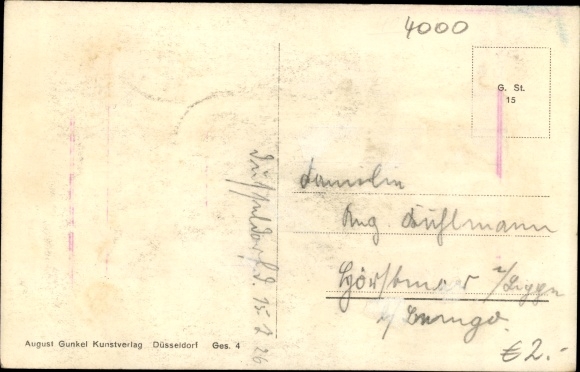 4000
G. St.
15
Düsseldorf d. 15.2.26
Familie
Aug Kuhlmann
Hörstmar i/Lippe
b/ Lemgo.
August Gunkel Kunstverlag Düsseldorf Ges. 4
€ 2.-